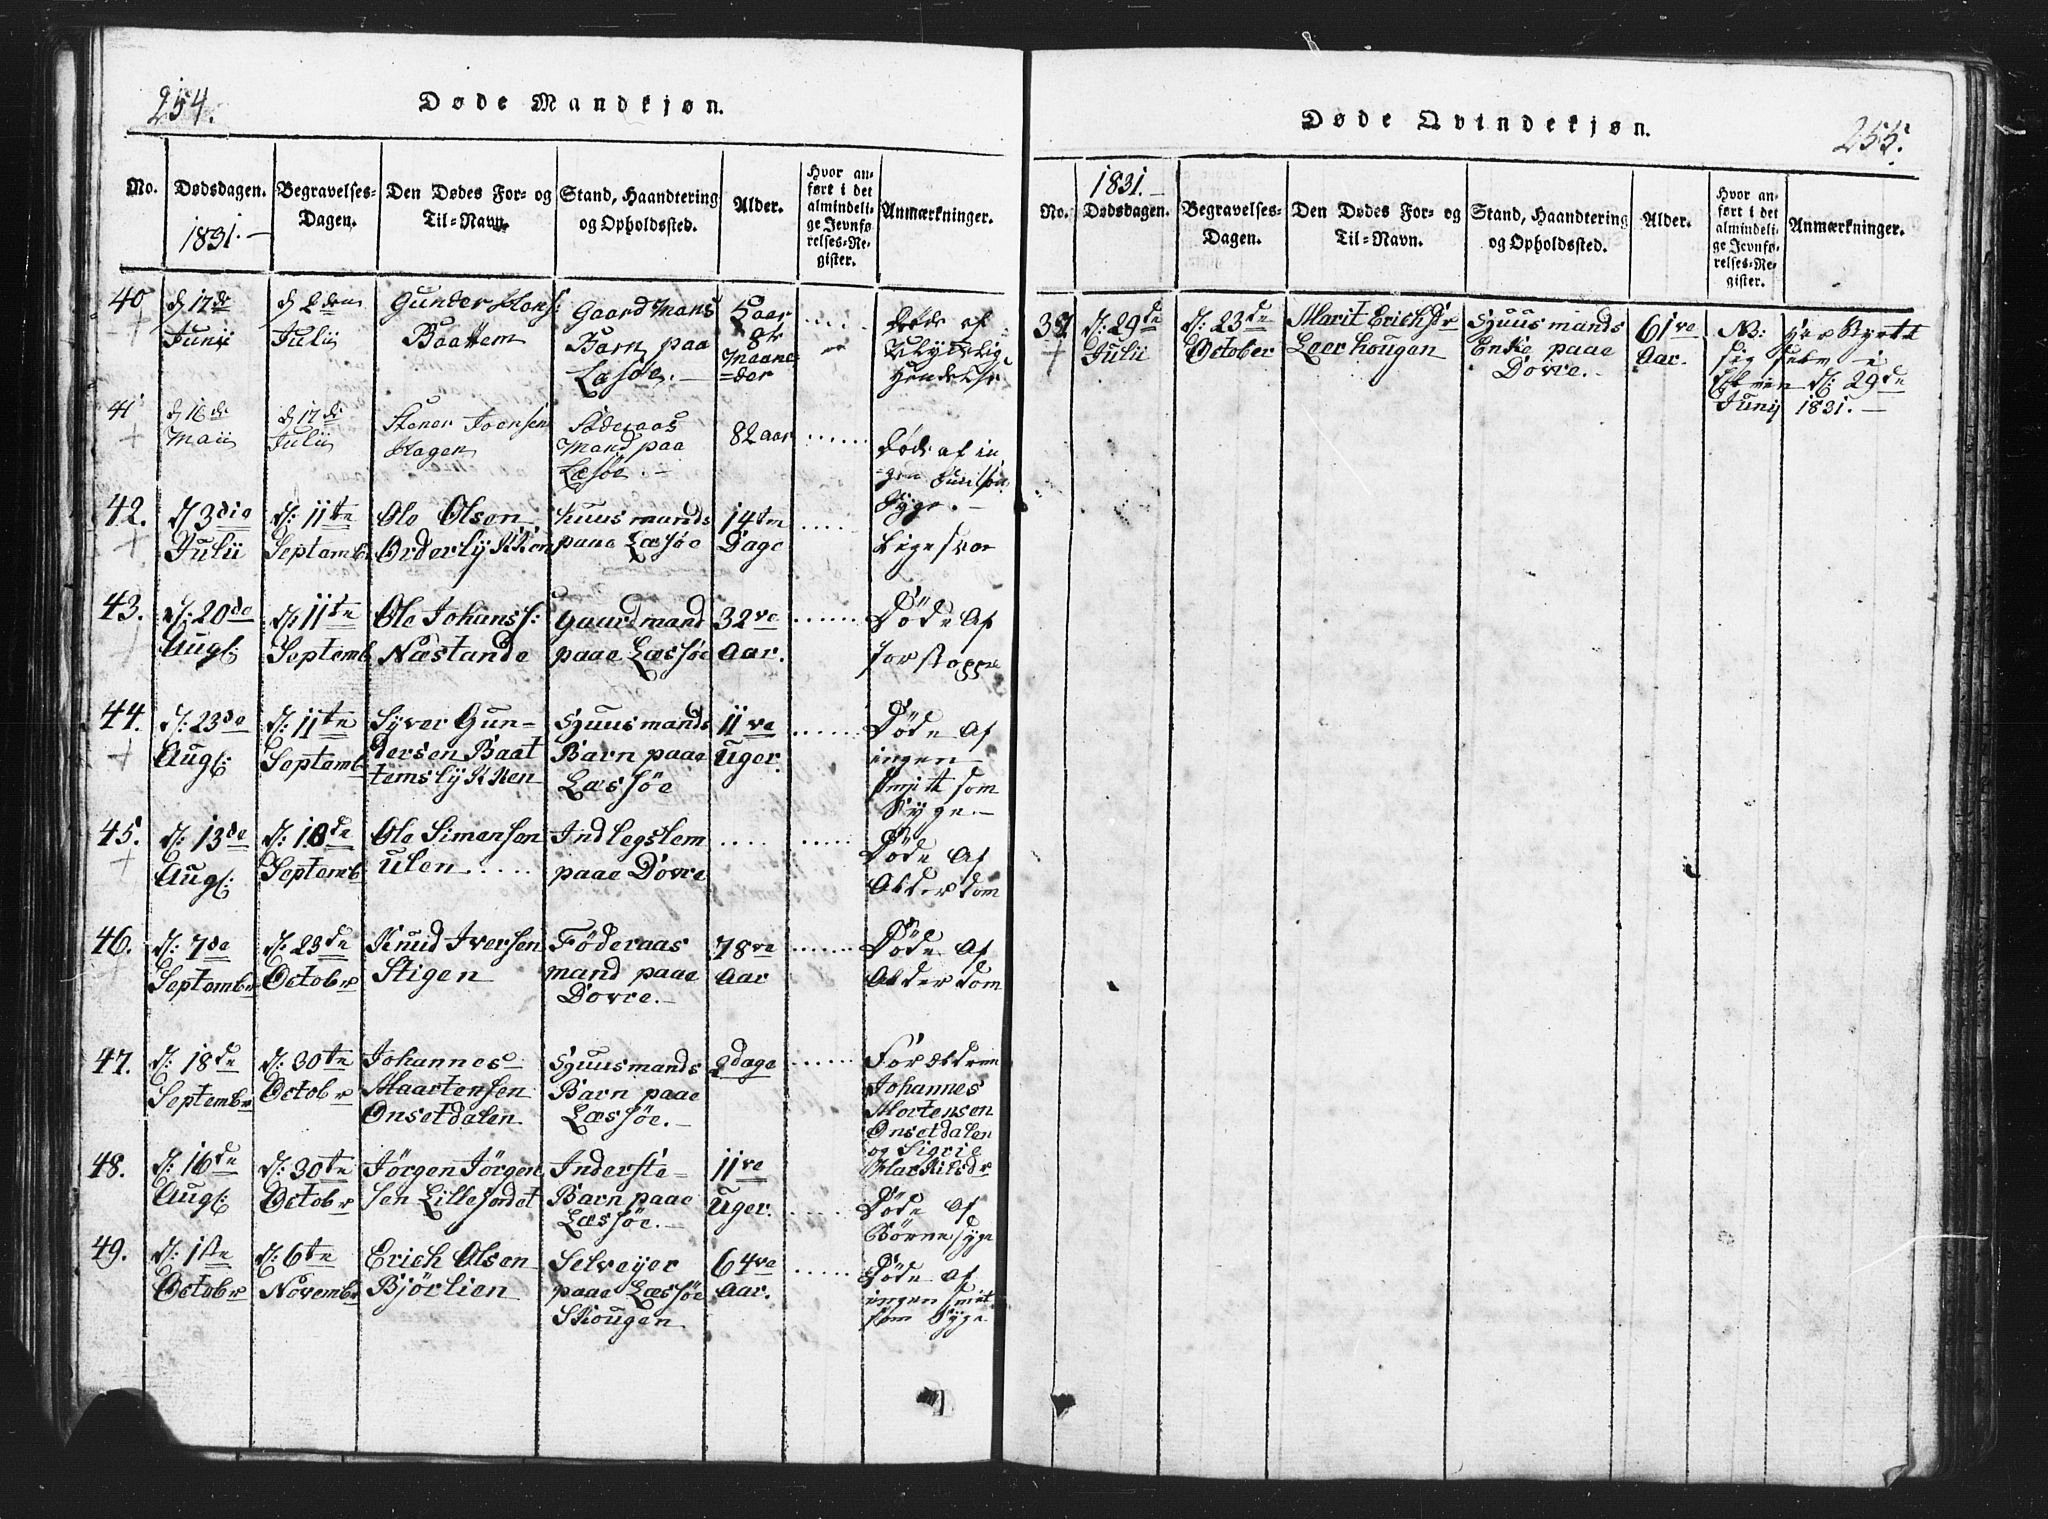 254.
Døde Mandkjøn.
No.
Dødsdagen.
1831.-
Begravelses-
Dagen.
Den Dødes For- og
Til-Navn.
Stand, Haandtering
og Opholdssted.
Alder.
Hvor an-
ført i det
almindeli-
ge Jevnfø-
relses-Re-
gister.
Anmærkninger.
40
d 17de
Junii
d 2den
Julii
Gunder
Baattem
Gaard Mans
Barn paa
Læsøe.-
5 aar
8te
Maane-
=der
Døde af
Ulyckelig
Hendelse
41
d 16de
Maii
d 17de
Julii
Stener Joensen
Hagen
Föderaas
Mand paa
Læsöe.-
82 aar
Döde af in
=gen
Syge.-
42.
d 3die
Julii
d: 11te
Septembr
Ole Olsen
Örderlykken
Huusmands
paae Læsöe
14ten
Dage
Ligesvor
43.
d: 20de
Augl:
d: 11te
Septemb
Ole Johanss:
Næstande
Gaardmand
paae Læssöe
32ve
Aar.
Döde Af
forstoppe
44.
d: 23de
Augl:
d: 11te
Septemb
Syver Gun-
dersen Baat
temslykken
Huusmands
Barn paae
Læssöe
11ve
Uger.
Döde Af
ingen
smitsom
Syge.-
45.
d: 13de
Augl:
d: 18de
Septemb
Ole Simensen
Ulen.....
Indlegslem
paae Dovre
Döde Af
Alderdom
46.
d: 7de
Septembr
d: 23de
Octobr
Knud Iversen
Stigen
Föderaas
mand paae
Dovre.-
78ve
Aar
Döde Af
Alderdom
47.
d: 18de
Septembr
d: 30te
Octobr
Johannes
Maartensen
Onsetdalen
Huusmands
Barn paae
Læssöe.-
2dage
Foreldrene
Johannes
Mortensen
Onsetdalen
og Sigrie
48.
d: 16de
Augl:
d: 30te
Octobr
Jörgen Jörgen
sen Lillejordet
Inderste-
Barn paae
Læssöe.-
11ve
Uger.
Döde Af
Börnesyge
49.
d: 1ste
Octobr
d: 6te
Novembr
Erich Olsen
Björlien
Selveyer
paae Læssöe
Skougen
64ve
Aar.
Döde Af
ingen smit
som Syge
Døde Qvindekjøn.
255.
No.
1831.-
Dødsdagen.
Begravelses-
Dagen.
Den Dødes For- og
Til-Navn.
Stand, Haandtering
og Opholdssted.
Alder.
Hvor an-
ført i det
almindeli-
ge Jevnfø-
relses-Re-
gister.
Anmærkninger.
d: 29de
Julii
d: 23de
October
Marit Erichsdr
Leerhougen
Huusmands
Enke paae
Dovre.-
61ve
Aar.
N: Har Styrtt
sig selv i
d: 29de
Junij 1831.-